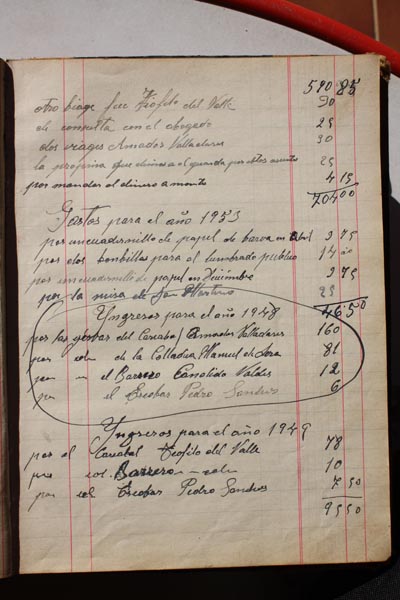 590 85
otro biage fue Tiófilo del Valle 90
de consulta con el abogado 25
dos viages Amador Valladares 30
la propina que dimos a el guarda por estos asuntos 25
por mandar el dinero a monte 4 15
704 00
Gastos para el año 1953
por un cuadernillo de papel de barva en Abril 3 75
por dos bombillas para el lumbrado publico 14 00
por un cuadernillo de papel en Diciembre 3 75
por la misa de San Martino 25
46 50
Yngresos para el año 1948
por las del Amador Valladares 160
por de la Colladia Manuel de Sora 81
por el Barrero Candido Valdés 12
por el Escobar Pedro Sendros 6
Yngresos para el año 1949
por el Tiofilo del Valle 78
por Barrero 10
por el Escobar Pedro Sendros 7 50
95 50